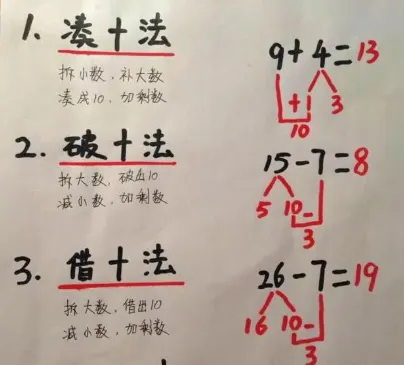 1. 凑十法
拆小数，补大数
凑成10，加剩数
9+4=13
+1 3
10
2. 破十法
拆大数，破出10
减小数，加剩数
15-7=8
5 10-
3
3. 借十法
拆大数，借出10
减小数，加剩数
26-7=19
16 10-
3